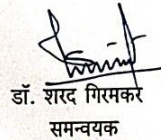 डॉ. शरद गिरमकर
समन्वयक